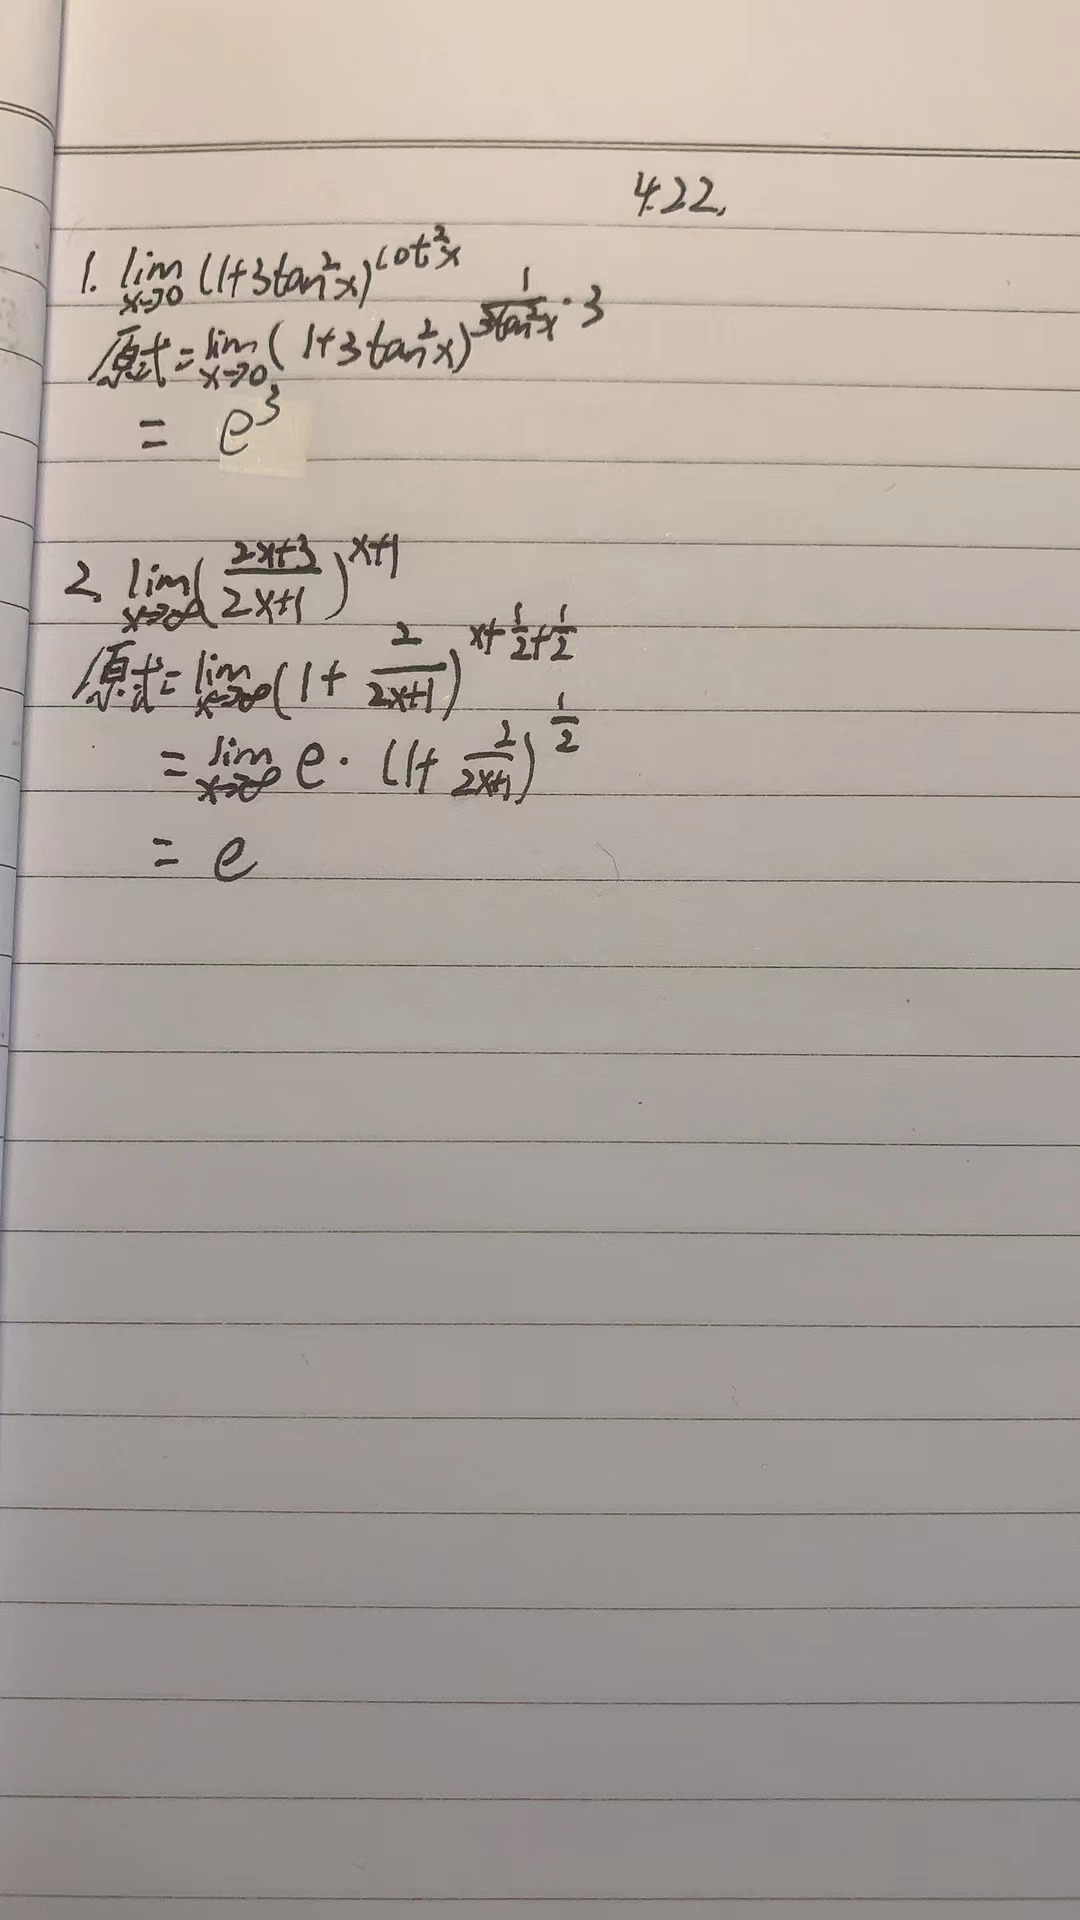 4.22.
1. lim_{x→0} (1+3tan²x)^{cot²x}
原式=lim_{x→0} (1+3tan²x)^{\frac{1}{3tan²x}·3}
= e³
2. lim_{x→∞} (\frac{2x+3}{2x+1})^{x+1}
原式=lim_{x→∞} (1+\frac{2}{2x+1})^{x+\frac{1}{2}+\frac{1}{2}}
=lim_{x→∞} e·(1+\frac{2}{2x+1})^{\frac{1}{2}}
= e